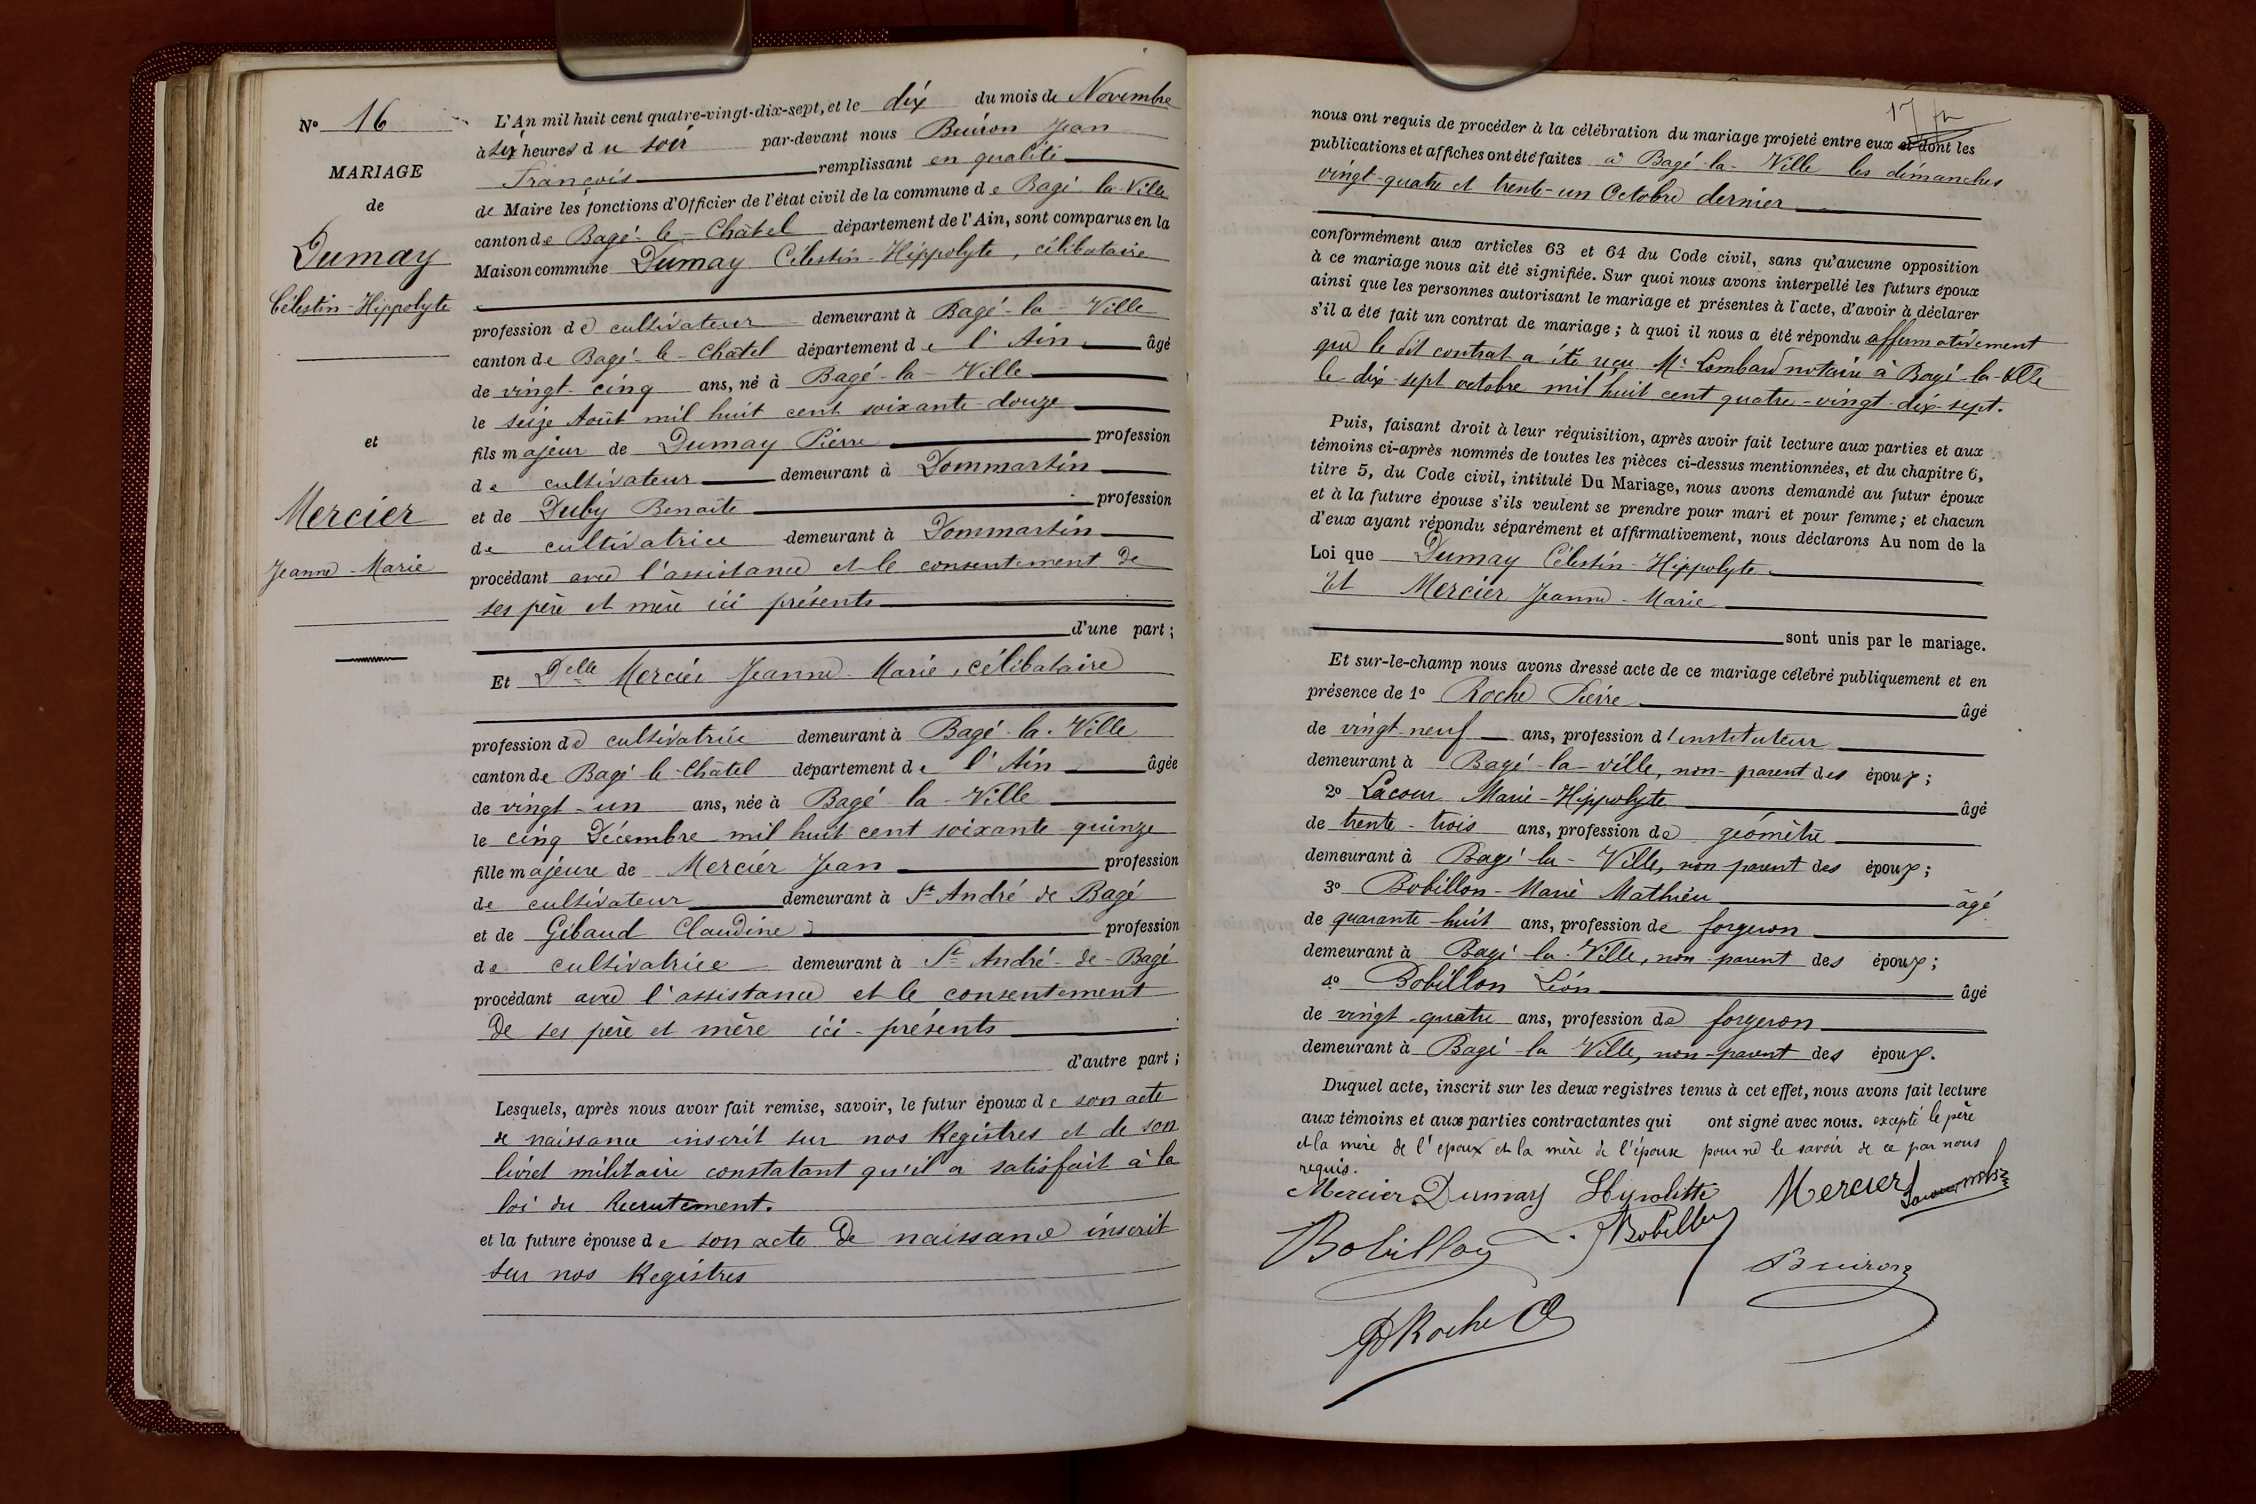 N° 16
MARIAGE
de
Dumay
Célestin-Hippolyte
et
Mercier
Jeanne-Marie
L'An mil huit cent quatre-vingt-dix-sept, et le dix du mois de Novembre
à six heures du soir par-devant nous Buiron Jean
François remplissant en qualité
de Maire les fonctions d'Officier de l'état civil de la commune de Bagé-la-Ville
canton de Bagé-le-Châtel département de l'Ain, sont comparus en la
Maison commune Dumay Célestin-Hippolyte, célibataire
profession de cultivateur demeurant à Bagé-la-Ville
canton de Bagé-le-Châtel département de l'Ain âgé
de vingt-cinq ans, né à Bagé-la-Ville
le seize Août mil huit cent soixante-douze
fils majeur de Dumay Pierre profession
de cultivateur demeurant à Dommartin
et de Duby Benoîte profession
de cultivatrice demeurant à Dommartin
procédant avec l'assistance et le consentement de
ses père et mère ici présents
d'une part;
Et Delle Mercier Jeanne-Marie, célibataire
profession de cultivatrice demeurant à Bagé-la-Ville
canton de Bagé-le-Châtel département de l'Ain âgée
de vingt-un ans, née à Bagé-la-Ville
le cinq Décembre mil huit cent soixante-quinze
fille majeure de Mercier Jean profession
de cultivateur demeurant à St André de Bagé
et de Gibaud Claudine profession
de cultivatrice demeurant à St André-de-Bagé
procédant avec l'assistance et le consentement
de ses père et mère ici-présents
d'autre part;
Lesquels, après nous avoir fait remise, savoir, le futur époux de son acte
de naissance inscrit sur nos Registres et de son
livret militaire constatant qu'il a satisfait à la
loi du Recrutement.
et la future épouse de son acte de naissance inscrit
sur nos Registres
17
nous ont requis de procéder à la célébration du mariage projeté entre eux et dont les
publications et affiches ont été faites à Bagé-la-Ville les dimanches
vingt-quatre et trente-un Octobre dernier
conformément aux articles 63 et 64 du Code civil, sans qu'aucune opposition
à ce mariage nous ait été signifiée. Sur quoi nous avons interpellé les futurs époux
ainsi que les personnes autorisant le mariage et présentes à l'acte, d'avoir à déclarer
s'il a été fait un contrat de mariage; à quoi il nous a été répondu affirmativement
que le dit contrat a été reçu Me Lombard notaire à Bagé-la-Ville
le dix-sept octobre mil huit cent quatre-vingt-dix-sept.
Puis, faisant droit à leur réquisition, après avoir fait lecture aux parties et aux
témoins ci-après nommés de toutes les pièces ci-dessus mentionnées, et du chapitre 6,
titre 5, du Code civil, intitulé Du Mariage, nous avons demandé au futur époux
et à la future épouse s'ils veulent se prendre pour mari et pour femme; et chacun
d'eux ayant répondu séparément et affirmativement, nous déclarons Au nom de la
Loi que Dumay Célestin-Hippolyte
Et Mercier Jeanne-Marie
sont unis par le mariage.
Et sur-le-champ nous avons dressé acte de ce mariage célébré publiquement et en
présence de 1° Roche Pierre âgé
de vingt-neuf ans, profession d'instituteur
demeurant à Bagé-la-ville, non-parent des époux;
2° Lacour Marie-Hippolyte âgé
de trente-trois ans, profession de géomètre
demeurant à Bagé-la-Ville, non parent des époux;
3° Bobillon-Marie Mathieu âgé
de quarante-huit ans, profession de forgeron
demeurant à Bagé-la-Ville, non parent des époux;
4° Bobillon Léon âgé
de vingt-quatre ans, profession de forgeron
demeurant à Bagé-la Ville, non-parent des époux.
Duquel acte, inscrit sur les deux registres tenus à cet effet, nous avons fait lecture
aux témoins et aux parties contractantes qui ont signé avec nous. excepté le père
et la mère de l'époux et la mère de l'épouse pour ne le savoir de ce par nous
requis.
Mercier Dumay Hypolitte Mercier
Bobillon Bobillon Buiron
P Roche